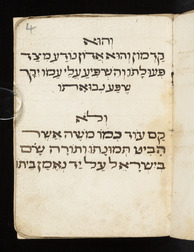 4
והוא
קדמון והוא אדון נודע מצד
פעולתו והשפיע עלי עמו
שפע נבואתו
ולא
קם עוד כמו משה אשר
הביט תמונתו ותורה שם
בישראל על יד נאמן ביתו